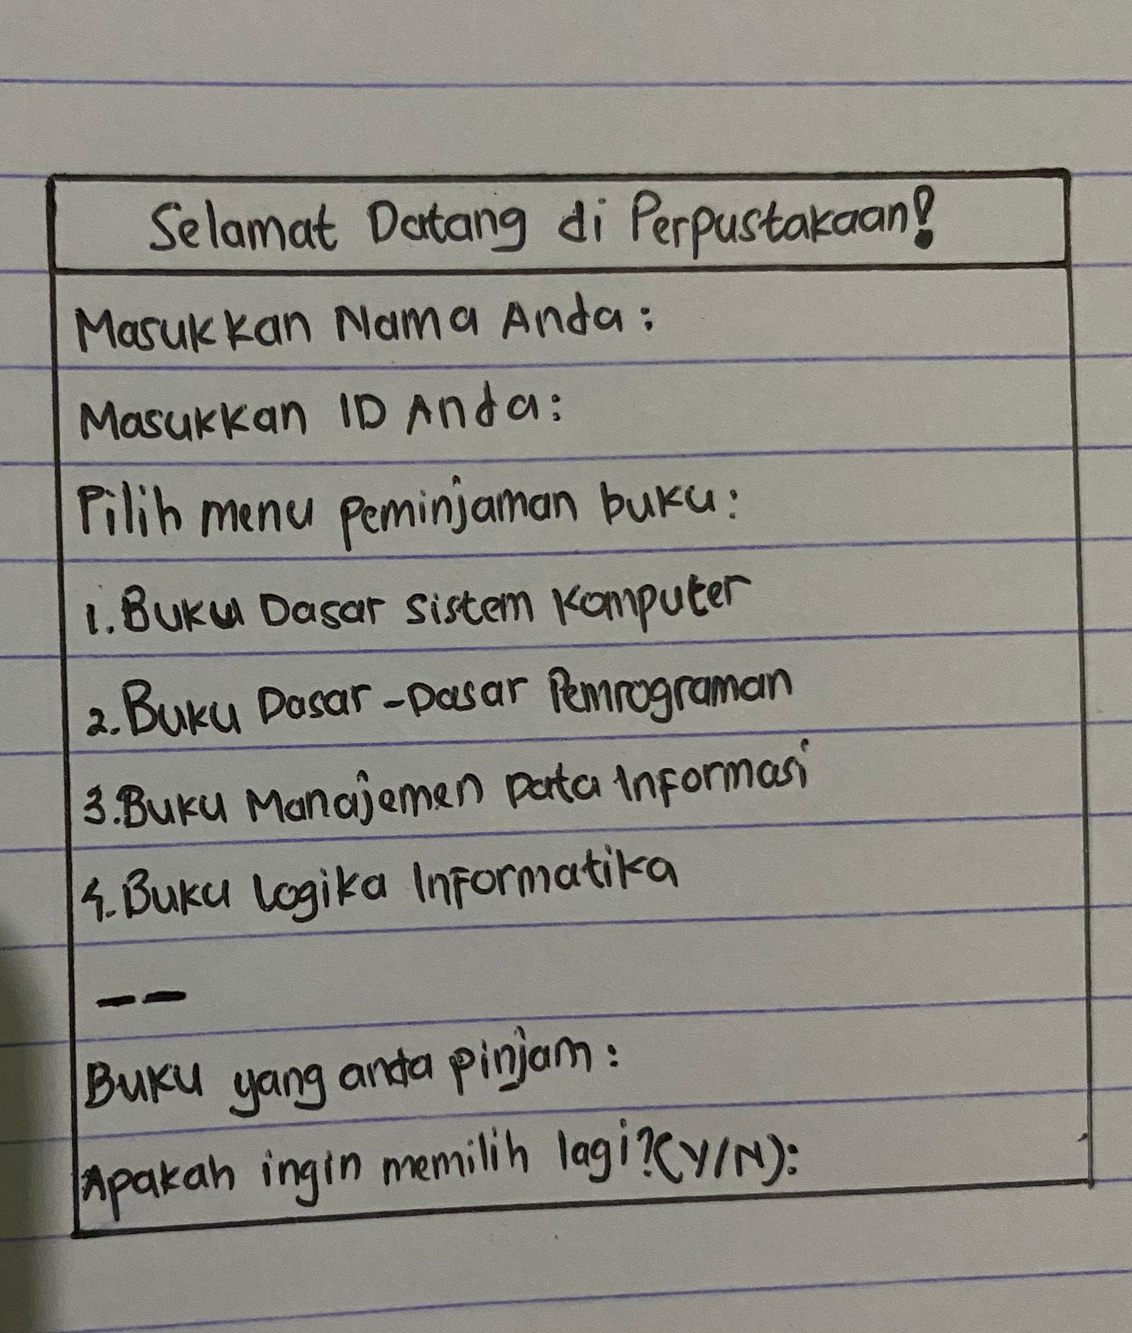 Selamat Datang di Perpustakaan!
Masukkan Nama Anda :
Masukkan ID Anda :
Pilih menu peminjaman buku :
1. Buku Dasar Sistem Komputer
2. Buku Dasar - Dasar Pemrograman
3. Buku Manajemen Data Informasi
4. Buku Logika Informatika
——
Buku yang anda pinjam :
Apakah ingin memilih lagi? (Y/N):